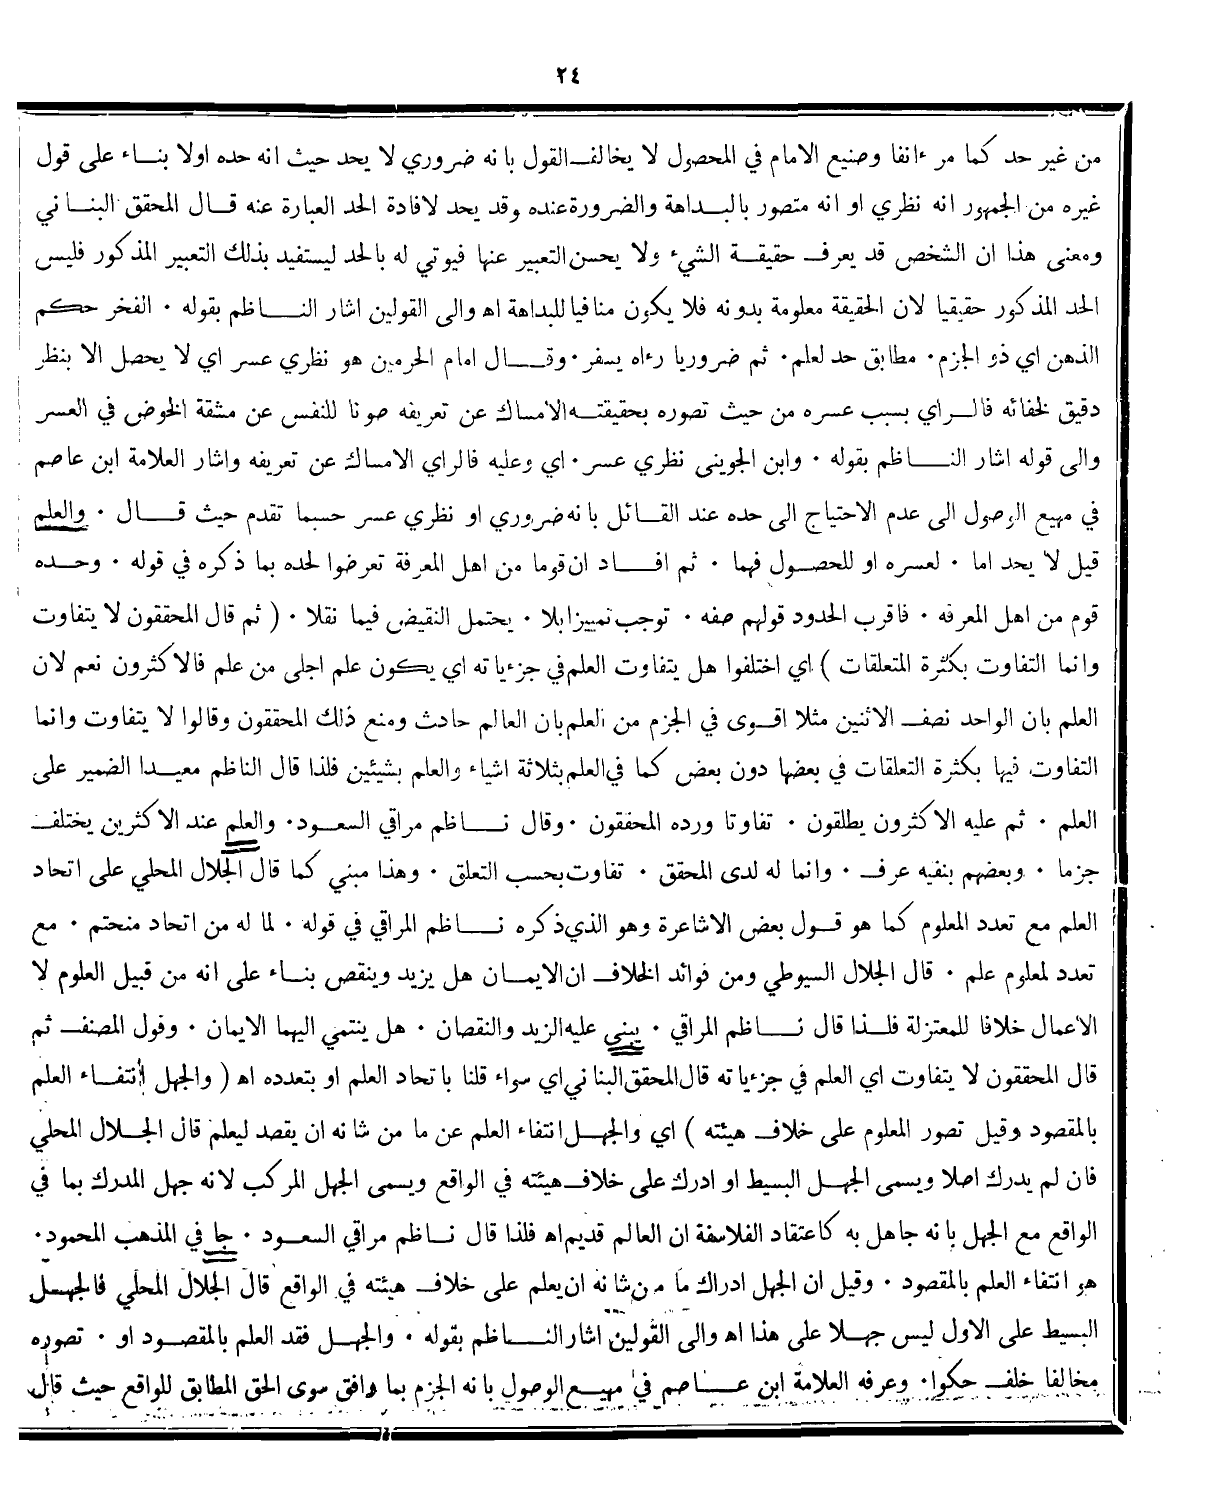 ٢٤
من غير حد كما مر ءانفا وصنيع الامام في المحصول لا يخالف القول بانه ضروري لا يحد حيث انه حده اولا بناء على قول
غيره من الجمهور انه نظري او انه متصور بالبداهة والضرورة عنده وقد يحد لافادة الحد العبارة عنه قال المحقق البناني
ومعنى هذا ان الشخص قد يعرف حقيقة الشيء ولا يحسن التعبير عنها فيوتي له بالحد ليستفيد بذلك التعبير المذكور فليس
الحد المذكور حقيقيا لان الحقيقة معلومة بدونه فلا يكون منافيا للبداهة اه والى القولين اشار الناظم بقوله • الفخر حكم
الذهن اي ذو الجزم • مطابق حد لعلم • ثم ضروريا رءاه يسفر • وقال امام الحرمين هو نظري عسر اي لا يحصل الا بنظر
دقيق لخفائه فالراي بسبب عسره من حيث تصوره بحقيقته الامساك عن تعريفه صونا للنفس عن مشقة الخوض في العسر
والى قوله اشار الناظم بقوله • وابن الجويني نظري عسر • اي وعليه فالراي الامساك عن تعريفه واشار العلامة ابن عاصم
في مهيع الوصول الى عدم الاحتياج الى حده عند القائل بانه ضروري او نظري عسر حسبما تقدم حيث قال • والعلم
قيل لا يحد اما • لعسره او للحصول فهما • ثم افاد ان قوما من اهل المعرفة تعرضوا لحده بما ذكره في قوله • وحده
قوم من اهل المعرفه • فاقرب الحدود قولهم صفه • توجب تمييزا بلا • يحتمل النقيض فيما نقلا • ( ثم قال المحققون لا يتفاوت
وانما التفاوت بكثرة المتعلقات ) اي اختلفوا هل يتفاوت العلم في جزءياته اي يكون علم اجلى من علم فالاكثرون نعم لان
العلم بان الواحد نصف الاثنين مثلا اقوى في الجزم من العلم بان العالم حادث ومنع ذلك المحققون وقالوا لا يتفاوت وانما
التفاوت فيها بكثرة التعلقات في بعضها دون بعض كما في العلم بثلاثة اشياء والعلم بشيئين فلذا قال الناظم معيدا الضمير على
العلم • ثم عليه الاكثرون يطلقون • تفاوتا ورده المحققون • وقال ناظم مراقي السعود • والعلم عند الاكثرين يختلف
جزما • وبعضهم بنفيه عرف • وانما له لدى المحقق • تفاوت بحسب التعلق • وهذا مبني كما قال الجلال المحلي على اتحاد
العلم مع تعدد المعلوم كما هو قول بعض الاشاعرة وهو الذي ذكره ناظم المراقي في قوله • لما له من اتحاد منحتم • مع
تعدد لمعلوم علم • قال الجلال السيوطي ومن فوائد الخلاف ان الايمان هل يزيد وينقص بناء على انه من قبيل العلوم لا
الاعمال خلافا للمعتزلة فلذا قال ناظم المراقي • يبنى عليه الزيد والنقصان • هل ينتمي اليهما الايمان • وقول المصنف ثم
قال المحققون لا يتفاوت اي العلم في جزءياته قال المحقق البناني اي سواء قلنا باتحاد العلم او بتعدده اه ( والجهل انتفاء العلم
بالمقصود وقيل تصور المعلوم على خلاف هيئته ) اي والجهل انتفاء العلم عن ما من شانه ان يقصد ليعلم قال الجلال المحلي
فان لم يدرك اصلا ويسمى الجهل البسيط او ادرك على خلاف هيئته في الواقع ويسمى الجهل المركب لانه جهل المدرك بما في
الواقع مع الجهل بانه جاهل به كاعتقاد الفلاسفة ان العالم قديم اه فلذا قال ناظم مراقي السعود • جا في المذهب المحمود •
هو انتفاء العلم بالمقصود • وقيل ان الجهل ادراك ما من شانه ان يعلم على خلاف هيئته في الواقع قال الجلال المحلي فالجهل
البسيط على الاول ليس جهلا على هذا اه والى القولين اشار الناظم بقوله • والجهل فقد العلم بالمقصود او • تصوره
مخالفا خلف حكوا • وعرفه العلامة ابن عاصم في مهيع الوصول بانه الجزم بما وافق سوى الحق المطابق للواقع حيث قال